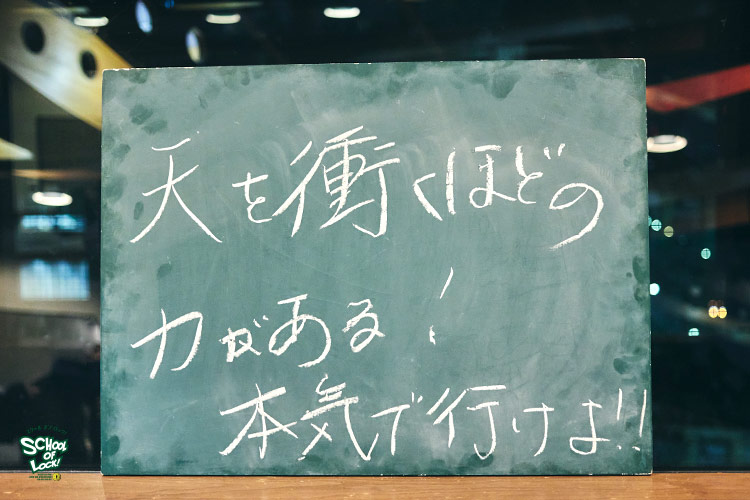 天を衝くほどの
力がある!
本気で行けよ!!
SCHOOL
OF
LOCK!